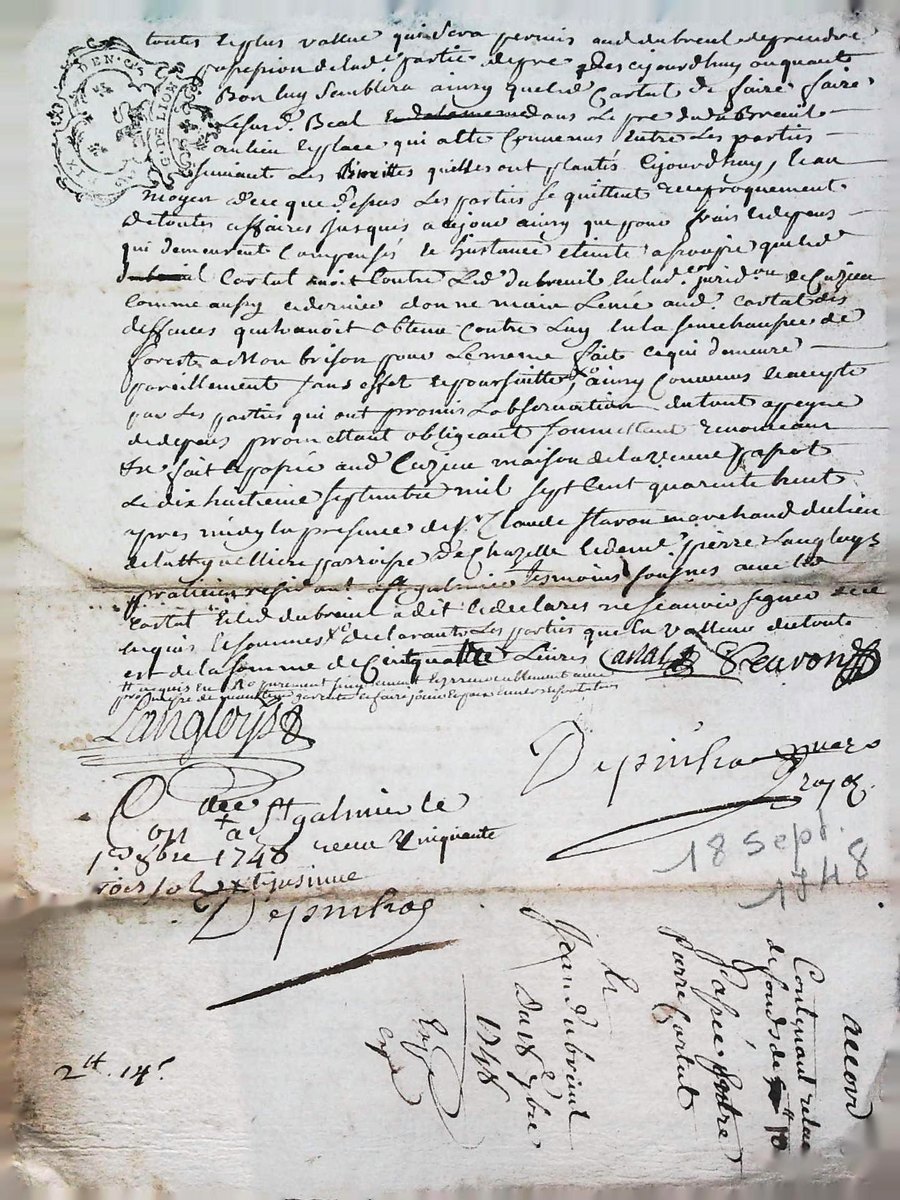 DEN·G
G·DE·LION
toutes le plus vallue qui sera permis aud dubreuil de prendre
possession de lad partie de pre des cejourdhuy ou quant
Bon luy semblera ainsy que led Cartal de faire faire
Le surd. Beal dans Le pre dud dubreuil
au lieu et place qui a ete Convenus entre Les parties
suivant Les qu'elles ont plantés Cejourdhuy, et au
moyen de ce que dessus Les parties se quittent reciproquement
de toutes affaires jusques a cejour ainsy que pour frais et depens
qui demeurent Compensés et L'instance eteinte assoupie que led
Cartal avoit Contre Led. dubreuil en lad. jurid.on de Cuzieu
Comme aussy ce dernier donne main Levée aud. Cartal des
deffances qu'il avoit obtenu Contre Luy en la senechaussée de
forest a Mon brison pour Le meme fait ce qui demeure
pareillement sans effet et poursuitte, ainsy Convenus et accepte
par Les parties qui ont promis L'observation du tout a peyne
de depens promettant obligeant soumettant renonceant
fait et passé aud Cuzieu maison de la veuve papot
Le dix huitieme septembre mil sept cent quarente huit
apres midy en presence de s.r Claude marchand du lieu
de la parroisse de Chazelle et de me. pierre Langloys
praticien resid.ant a St galmier tesmoins sousnés avec led
Cartal et led dubreuil a dit et declares ne scavoir signer de ce
enquis et sommes declarants Les parties que la valleur du tout
est de la somme de Cinquante Livres
Langloys
Depinhac
Con.lee a St galmier le
1er 8bre 1748 receu Cinquante
Depinhac
18 sept.
1748
2tt 14s
accord
Contenant
de fonds de 10
passé Entre
Pierre Cartal
Et
Jean dubreuil
Du 18 7bre
1748
Exp